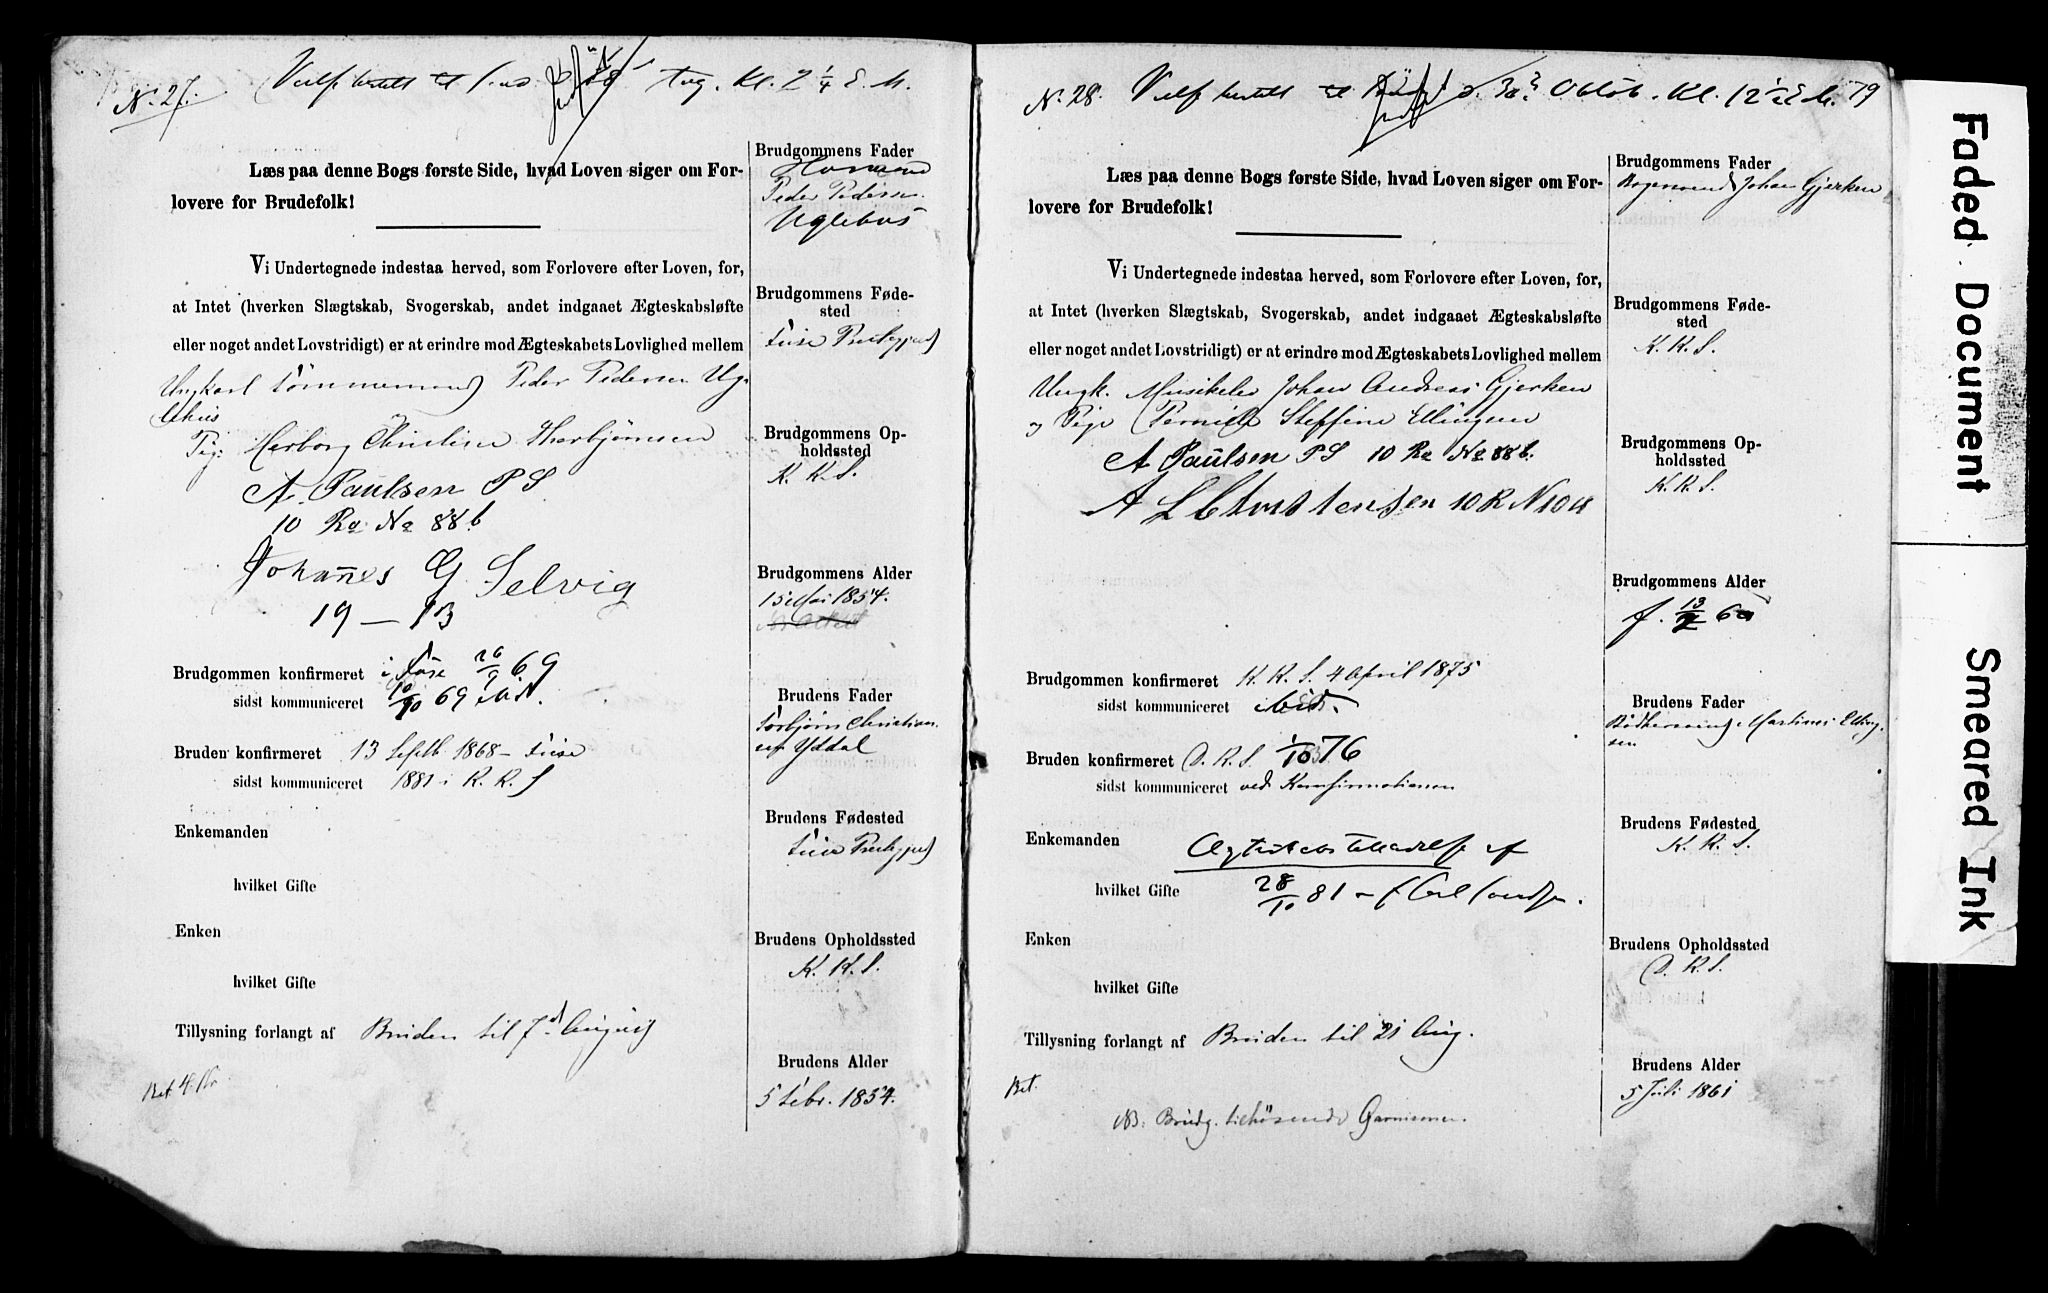 No. 27.
Aug. Kl. 2 1/4 E. M.
Læs paa denne Bogs første Side, hvad Loven siger om For-
lovere for Brudefolk!
Vi Undertegnede indestaa herved, som Forlovere efter Loven, for,
at Intet (hverken Slægtskab, Svogerskab, andet indgaaet Ægteskabsløfte
eller noget andet Lovstridigt) er at erindre mod Ægteskabets Lovlighed mellem
Ungkarl Tømmermand Peder Pedersen Ug-
lehus
Pig: Herborg Christine Thorbjørnsen
A. Paulsen P S
10 Ro No 88 b
Johannes G Selvig
19 — 13
Brudgommen konfirmeret i Fuse 26/9 69
sidst kommuniceret 10/10 69
Bruden konfirmeret 13 Septb. 1868 - Fuse
sidst kommuniceret 1881 i K. K. S
Enkemanden
hvilket Gifte
Enken
hvilket Gifte
Tillysning forlangt af Bruden til 7d August
Bet 4 Kr
Brudgommens Fader
Husmand
Peder Pedersen
Uglehus
BrudgommensFøde-
sted
Fuse Prestegjeld
Brudgommens Op-
holdssted
K. K. S.
Brudgommens Alder
15 Mai 1854.
Brudens Fader
Torbjørn Christian-
sen Yddal
Brudens Fødested
Fuse Prestegjeld
Brudens Opholdssted
K. K. S.
Brudens Alder
5 Febr. 1854.
No. 28. Oktob. Kl. 12 1/2 E. M. 79
Læs paa denne Bogs første Side, hvad Loven siger om For-
lovere for Brudefolk!
Vi Undertegnede indestaa herved, som Forlovere efter Loven, for,
at Intet (hverken Slægtskab, Svogerskab, andet indgaaet Ægteskabsløfte
eller noget andet Lovstridigt) er at erindre mod Ægteskabets Lovlighed mellem
Ungk. Musikelev Johan Andreas Gjerken
og Pige Pernille Steffine Ellingsen
A Paulsen P S 10 Ro No 88 b.
A L Christensen 10 R N 10 a
Brudgommen konfirmeret K. K. S. 4 April 1875
sidst kommuniceret ibid.
Bruden konfirmeret D. K. S. 1/10 76
sidst kommuniceret ved Konfirmationen
Enkemanden Ægteskabstilladelse af
hvilket Gifte 28/10 81
Enken
hvilket Gifte
Tillysning forlangt af Bruden til 21 Aug.
Bet.
NB. Brudg. tilhørende Garnisonen.
Brudgommens Fader
Johan Gjerken
Brudgommens Føde-
sted
K. K. S.
Brudgommens Op-
holdssted
K. K. S.
Brudgommens Alder
f. 13/2 60
Brudens Fader
Bødkersvend Martinus Elling-
sen
Brudens Fødested
K. K. S.
Brudens Opholdssted
D. K. S.
Brudens Alder
5 Juli 1861
Faded Document
Smeared Ink